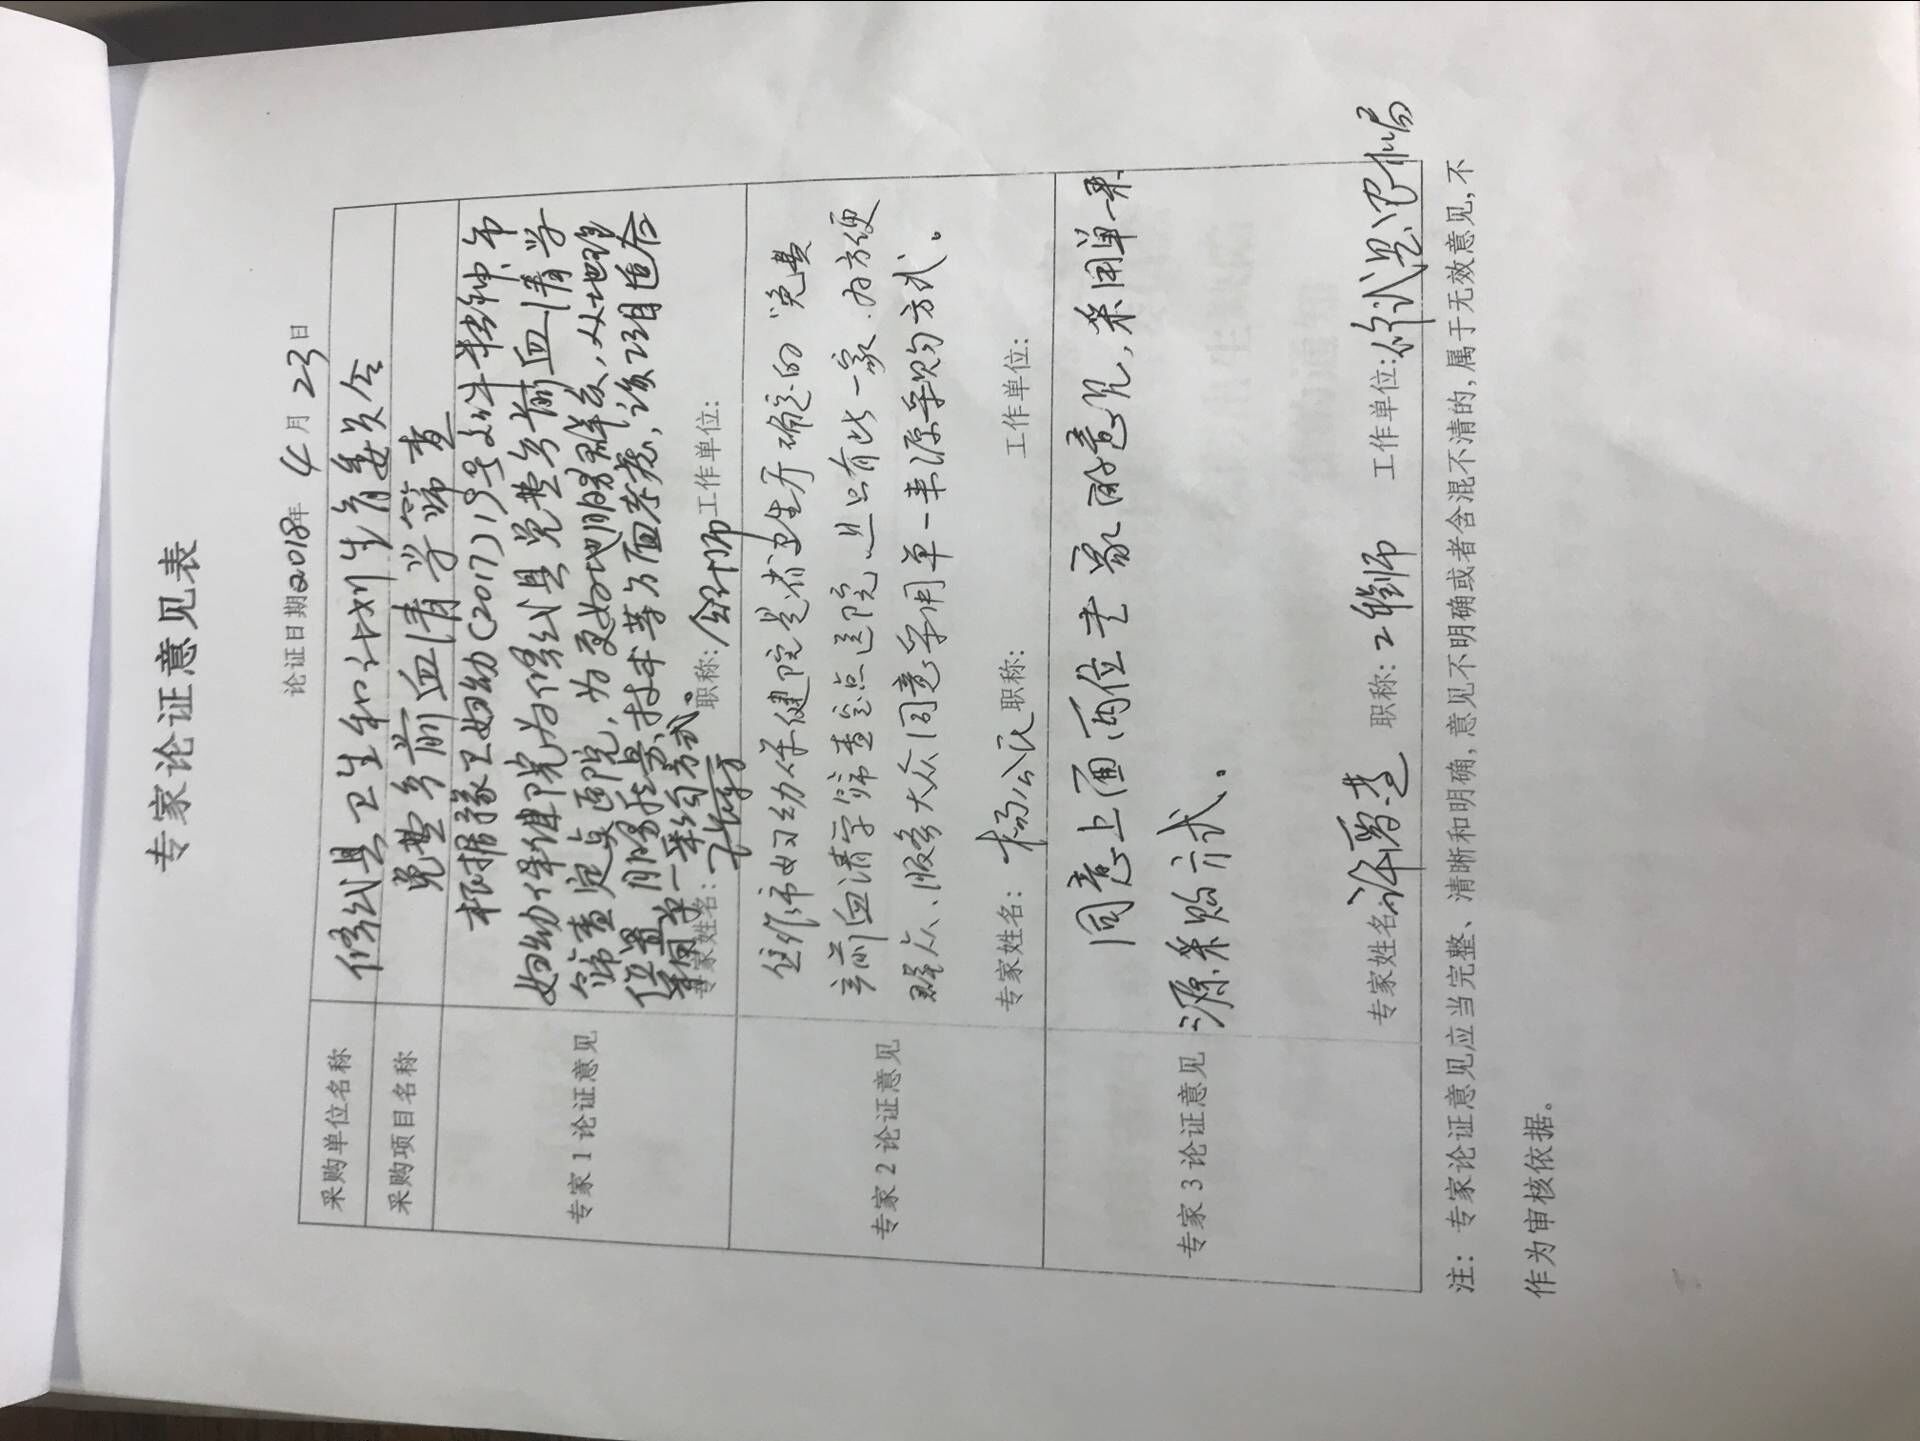 专家论证意见表
论证日期2018年 4 月 23 日
采购单位名称 修武县卫生和计划生育委员会
采购项目名称 免费产前血清学筛查
根据豫卫妇幼(2017)19号文件精神,市
妇幼保健院为修武县免费产前血清学
专家 1 论证意见 筛查定点医院,为更好地服务群众,从地理
位置、服务能力、技术等方面考虑,该项目适合
采用单一来源方式。
专家姓名: 职称:会计师 工作单位:
焦作市妇幼保健院是省卫生厅确定的“免费
产前血清学筛查定点医院,且只有此一家,为方便
专家 2 论证意见 群众、服务大众同意采用单一来源采购方式。
专家姓名: 杨公民 职称: 工作单位:
同意上面两位专家的意见,采用单一来
专家 3 论证意见 源采购方式.
专家姓名: 职称:工程师 工作单位:
注:专家论证意见应当完整、清晰和明确,意见不明确或者含混不清的,属于无效意见,不
作为审核依据。